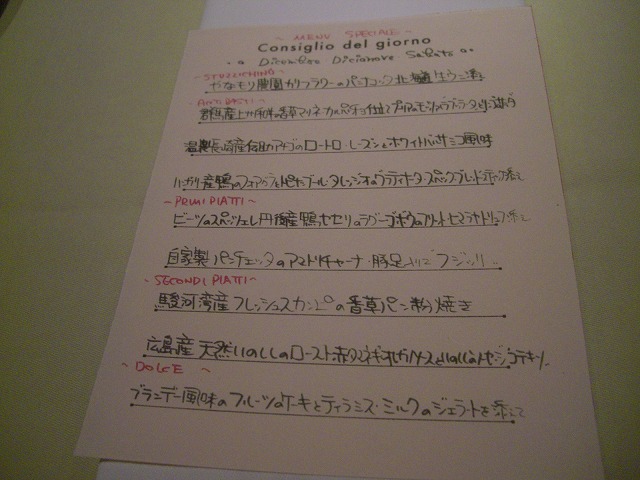 ~ MENU SPECIALE ~
Consiglio del giorno
Dicembre Dicianove Sabato
~ STUZZICHINO ~
やなもり農園カリフラワーのパンナコッタ 北海道生ウニ添え
~ ANTIPASTI ~
群馬産上州和牛の香草マリネ カルパッチョ仕立て
温製 長崎産 アナゴのロートロ レーズンとホワイトバルサミコ風味
ハンガリー産鴨のフォアグラと タレッジオのグラティナータ 添えて
~ PRIMI PIATTI ~
ビーツのスペッツェレ 丹後産鴨とセセリのラグー ゴボウのフリット 添えて
自家製パンチェッタのアマトリチャーナ 豚足入り フジッリ
~ SECONDI PIATTI ~
駿河湾産 フレッシュスカンピの香草パン粉焼き
広島産 天然いのししのロースト 赤タマネギ
~ DOLCE ~
ブランデー風味のフルーツのケーキとティラミス ミルクのジェラートを添えて